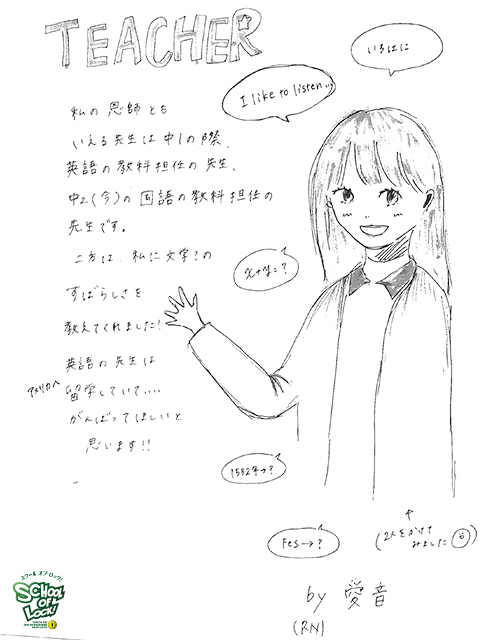 TEACHER
いろはに
I like to listen...
私の恩師とも
いえる先生は中1の際、
英語の教科担任の先生、
中2(今)の国語の教科担任の
先生です。
二方は、私に文学?の
すばらしさを
教えてくれました!
英語の先生は
アメリカへ
留学していて....
がんばってほしいと
思います!!
x+y=?
1582年→?
Fes→?
↑
(2人をかけて
みました)
by 愛音
(RN)
スクール オブ ロック!
SCHOOL
OF
LOCK!